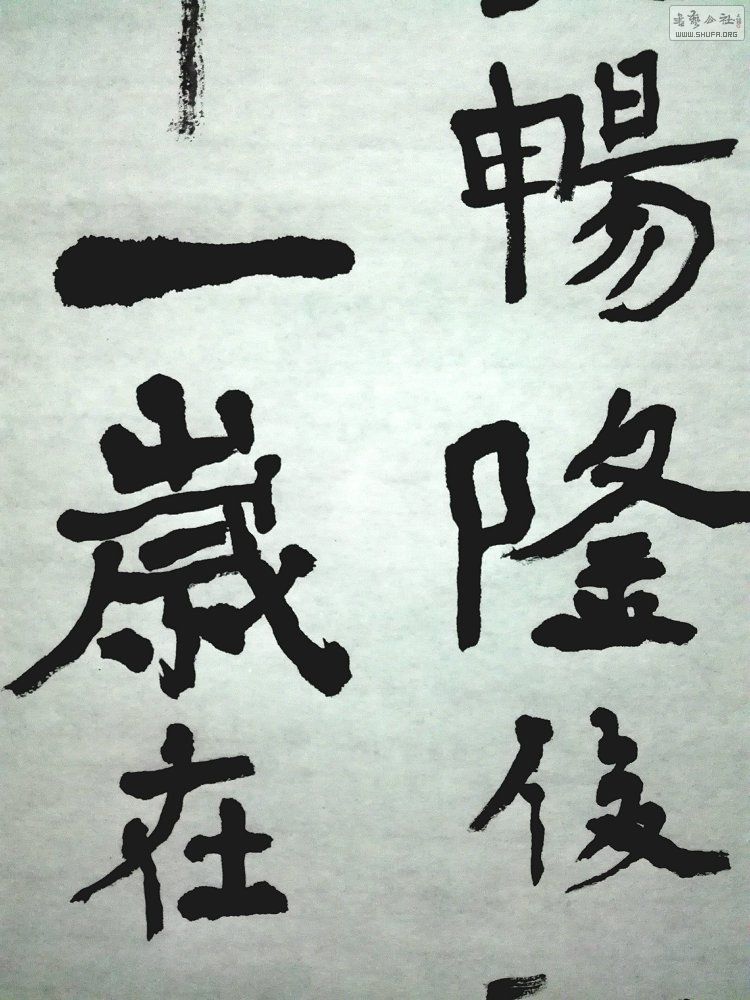 暢隆俊
一歲在
书艺公社
WWW.SHUFA.ORG